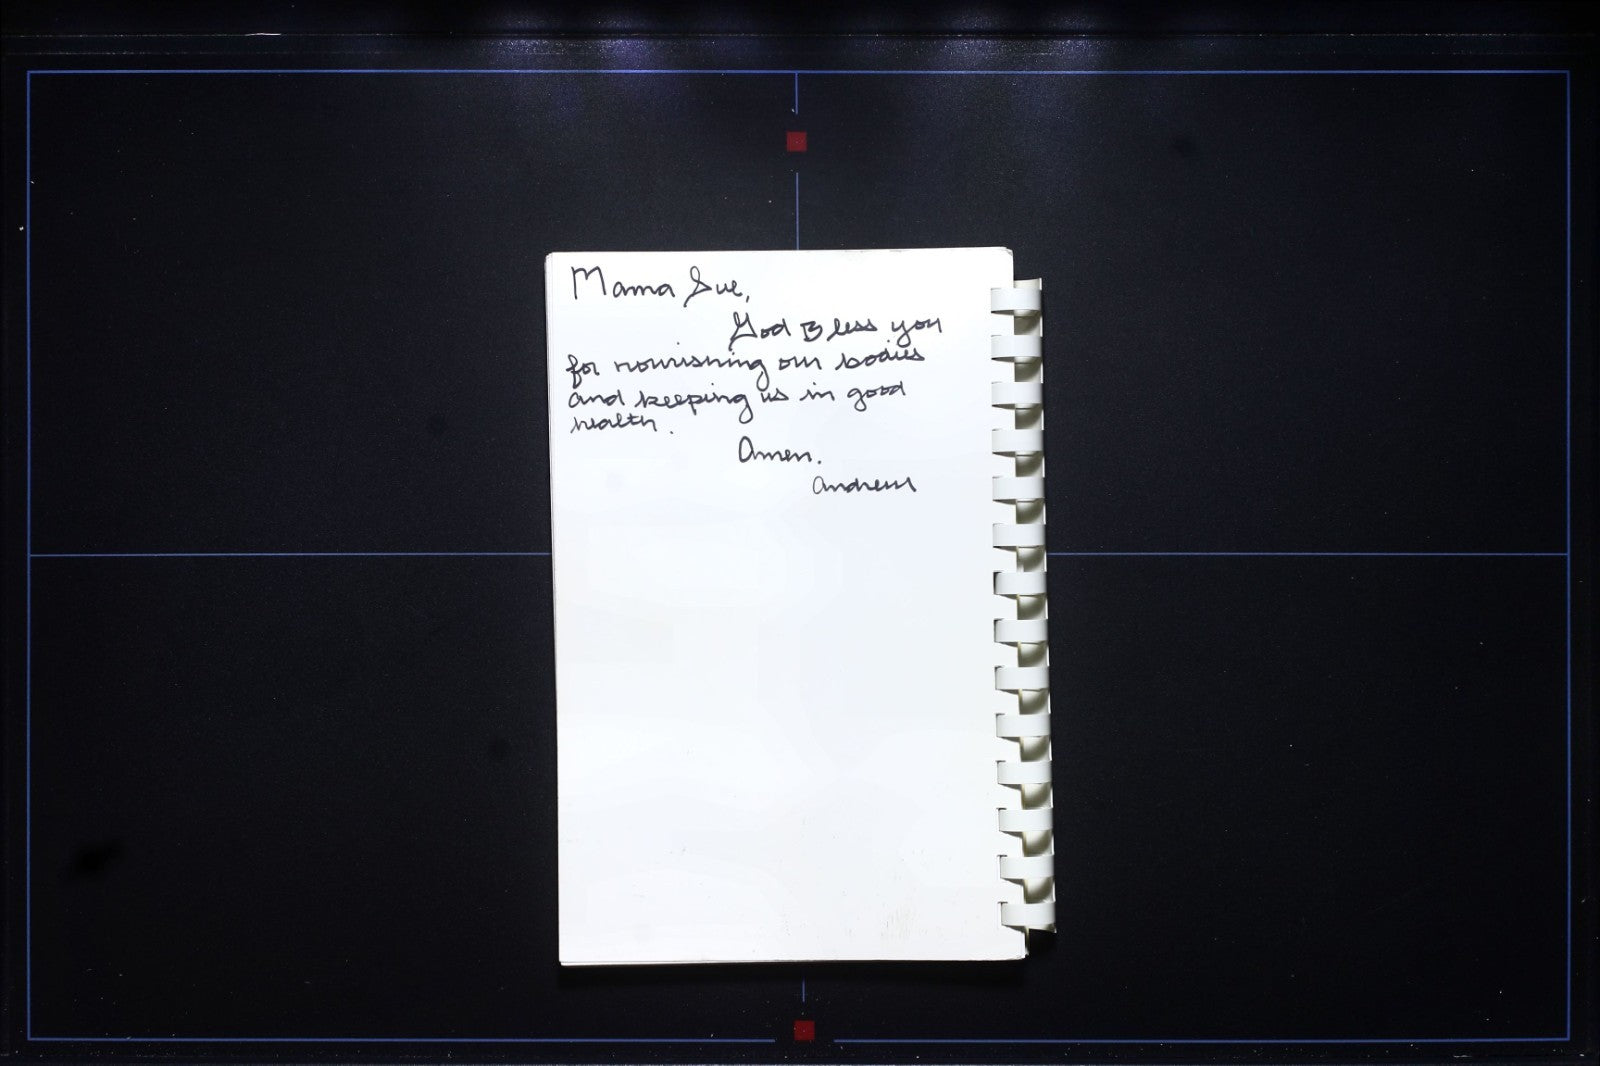 Mama Sue,
God Bless you
for nourishing our bodies
and keeping us in good
health.
Amen.
Andrew